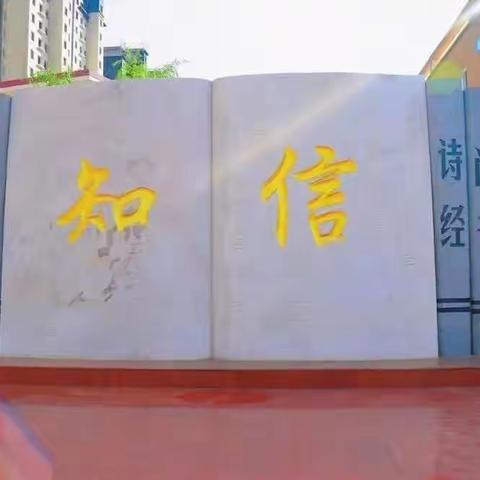 知 信
诗经